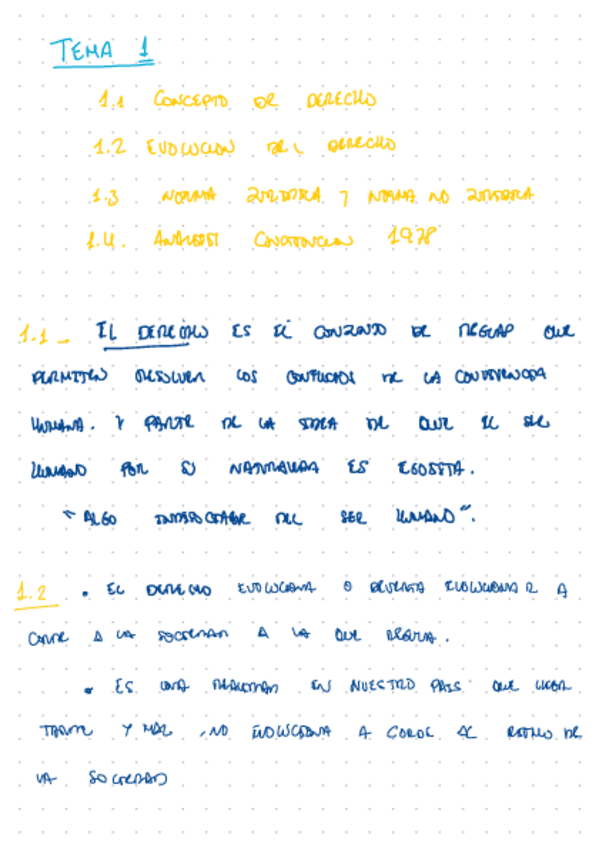 TEMA 1
1.1 CONCEPTO DE DERECHO
1.2 EVOLUCION DEL DERECHO
1.3 NORMA JURIDICA Y NORMA NO JURIDICA
1.4. ANALISIS CONSTITUCION 1978
1.1 - EL DERECHO ES EL CONJUNTO DE REGLAS QUE
PERMITEN RESOLVER LOS CONFLICTOS DE LA CONVIVENCIA
HUMANA. Y PARTE DE LA IDEA DE QUE EL SER
HUMANO POR SU NATURALEZA ES EGOISTA.
"ALGO DEL SER HUMANO".
1.2 • EL DERECHO EVOLUCIONA O DEBERIA EVOLUCIONAR A
A LA SOCIEDAD A LA QUE REGULA.
• ES UNA REALIDAD EN NUESTRO PAIS QUE LLEGA
TARDE Y MAL, NO EVOLUCIONA A AL RITMO DE
LA SOCIEDAD